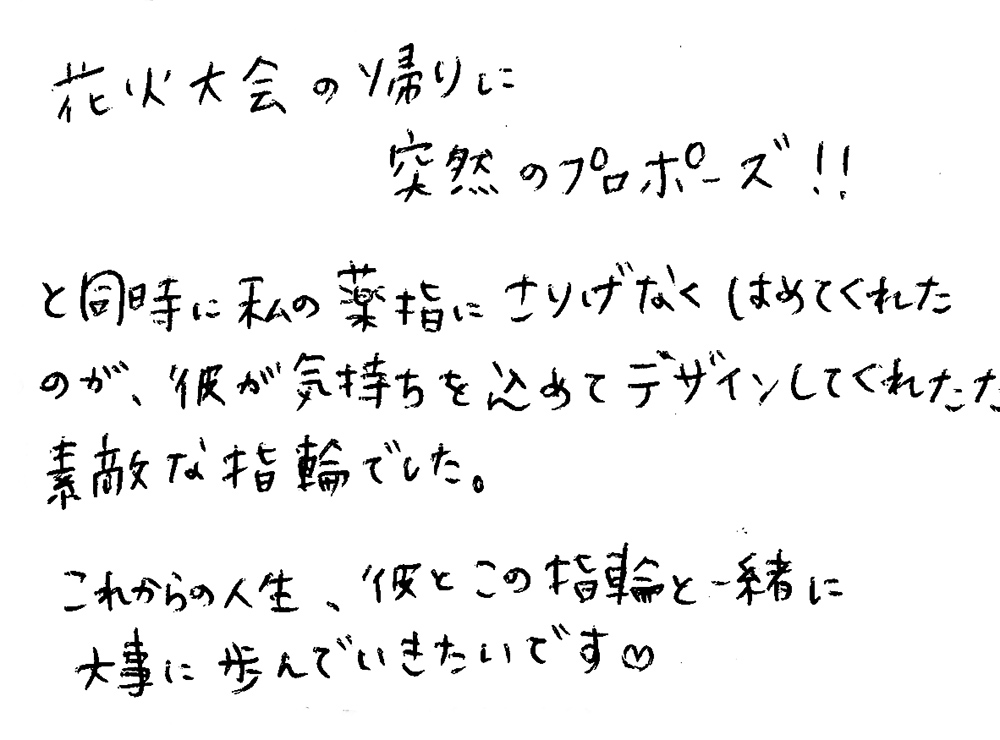 花火大会の帰りに
突然のプロポーズ!!
と同時に私の薬指にさりげなくはめてくれた
のが、彼が気持ちを込めてデザインしてくれたた
素敵な指輪でした。
これからの人生、彼とこの指輪と一緒に
大事に歩んでいきたいです♡